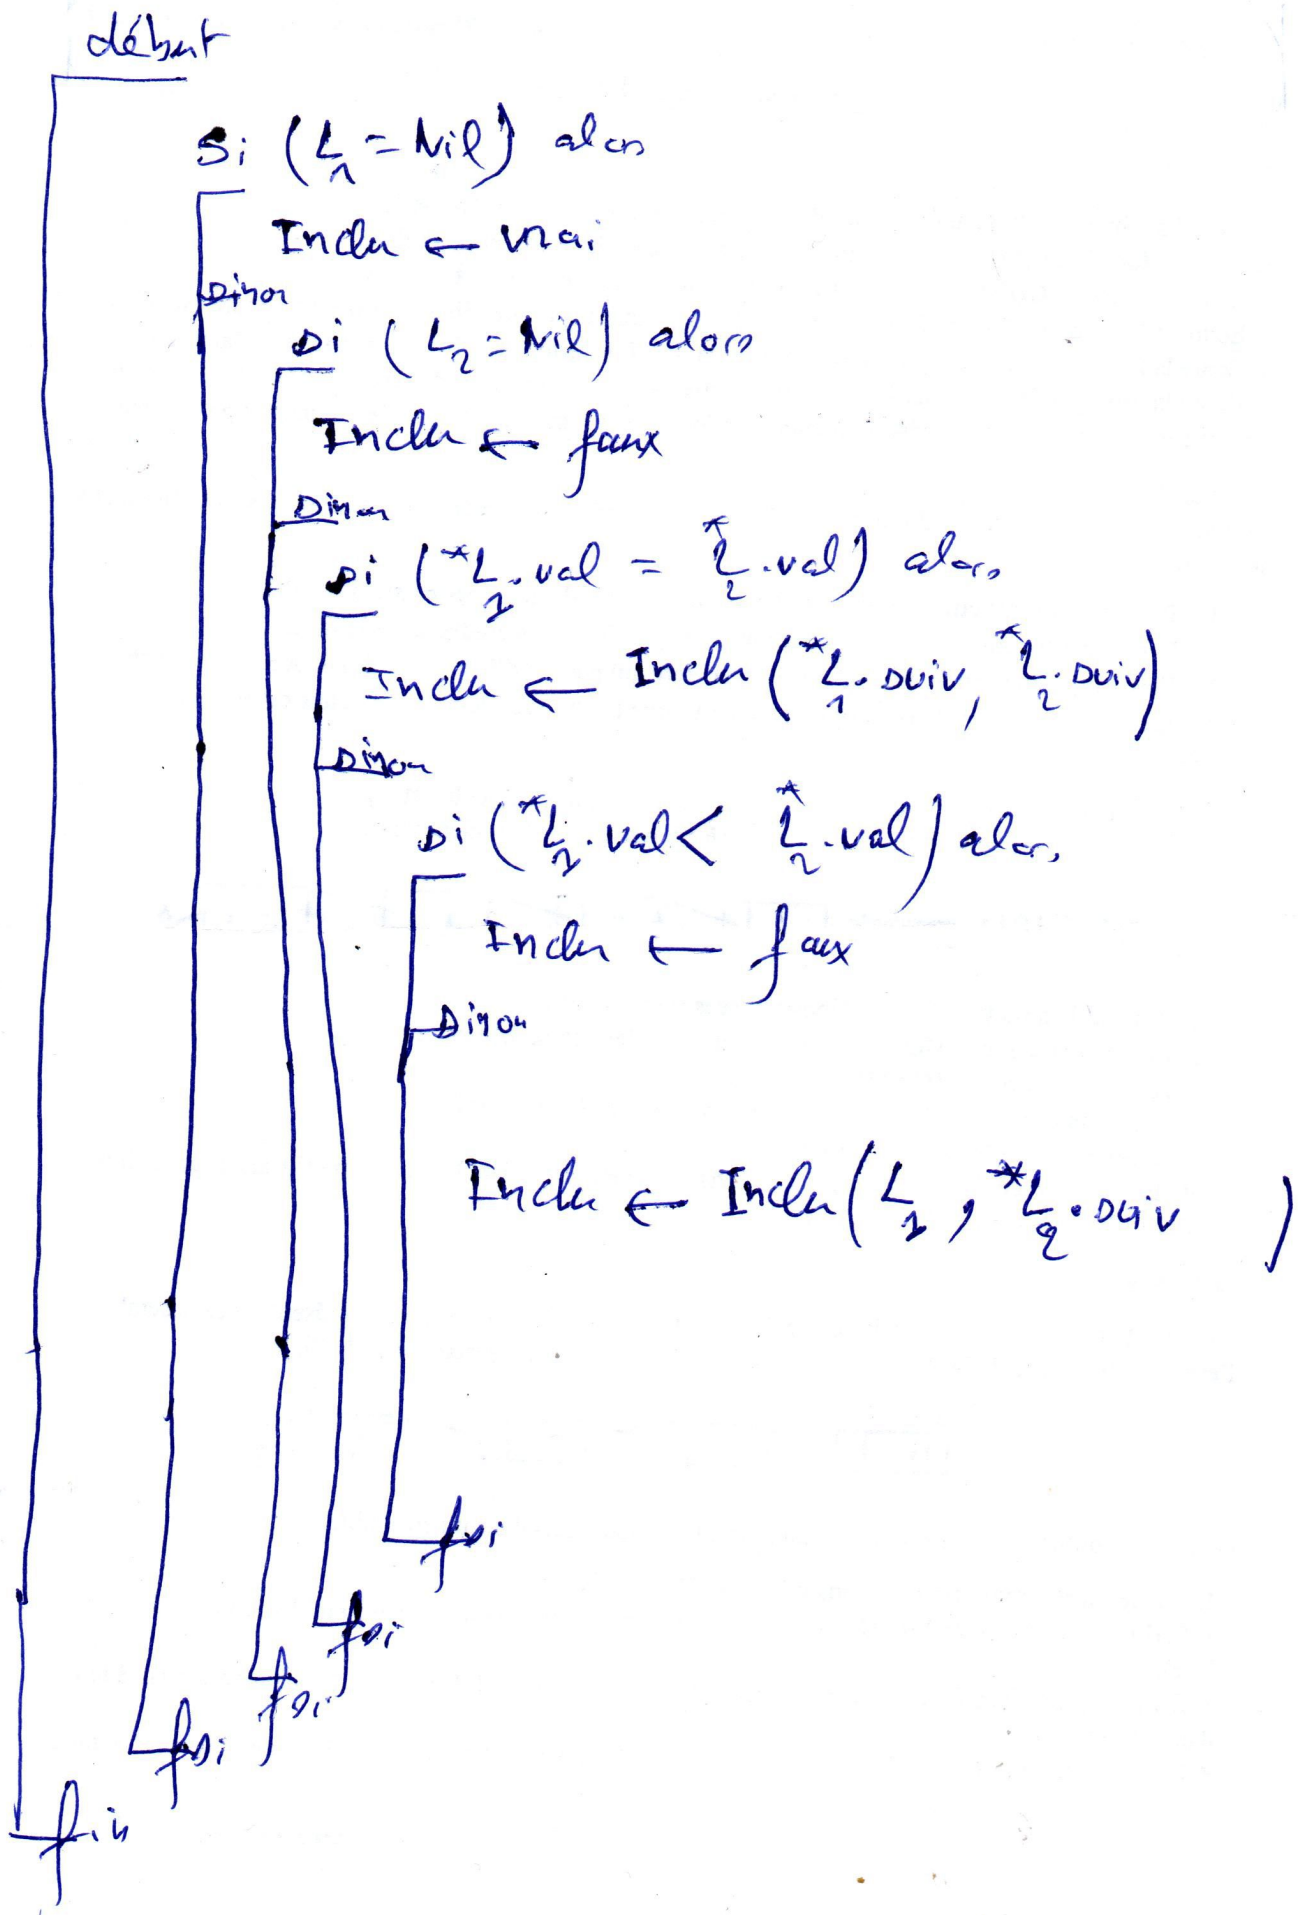 début
Si (L1 = Nil) alors
Inclu ← vrai
sinon
si (L2 = Nil) alors
Inclu ← faux
sinon
si (*L1.val = *L2.val) alors
Inclu ← Inclu (*L1.suiv, *L2.suiv)
sinon
si (*L1.val < *L2.val) alors
Inclu ← faux
sinon
Inclu ← Inclu (L1, *L2.suiv )
fsi
fsi
fsi
fsi
fin